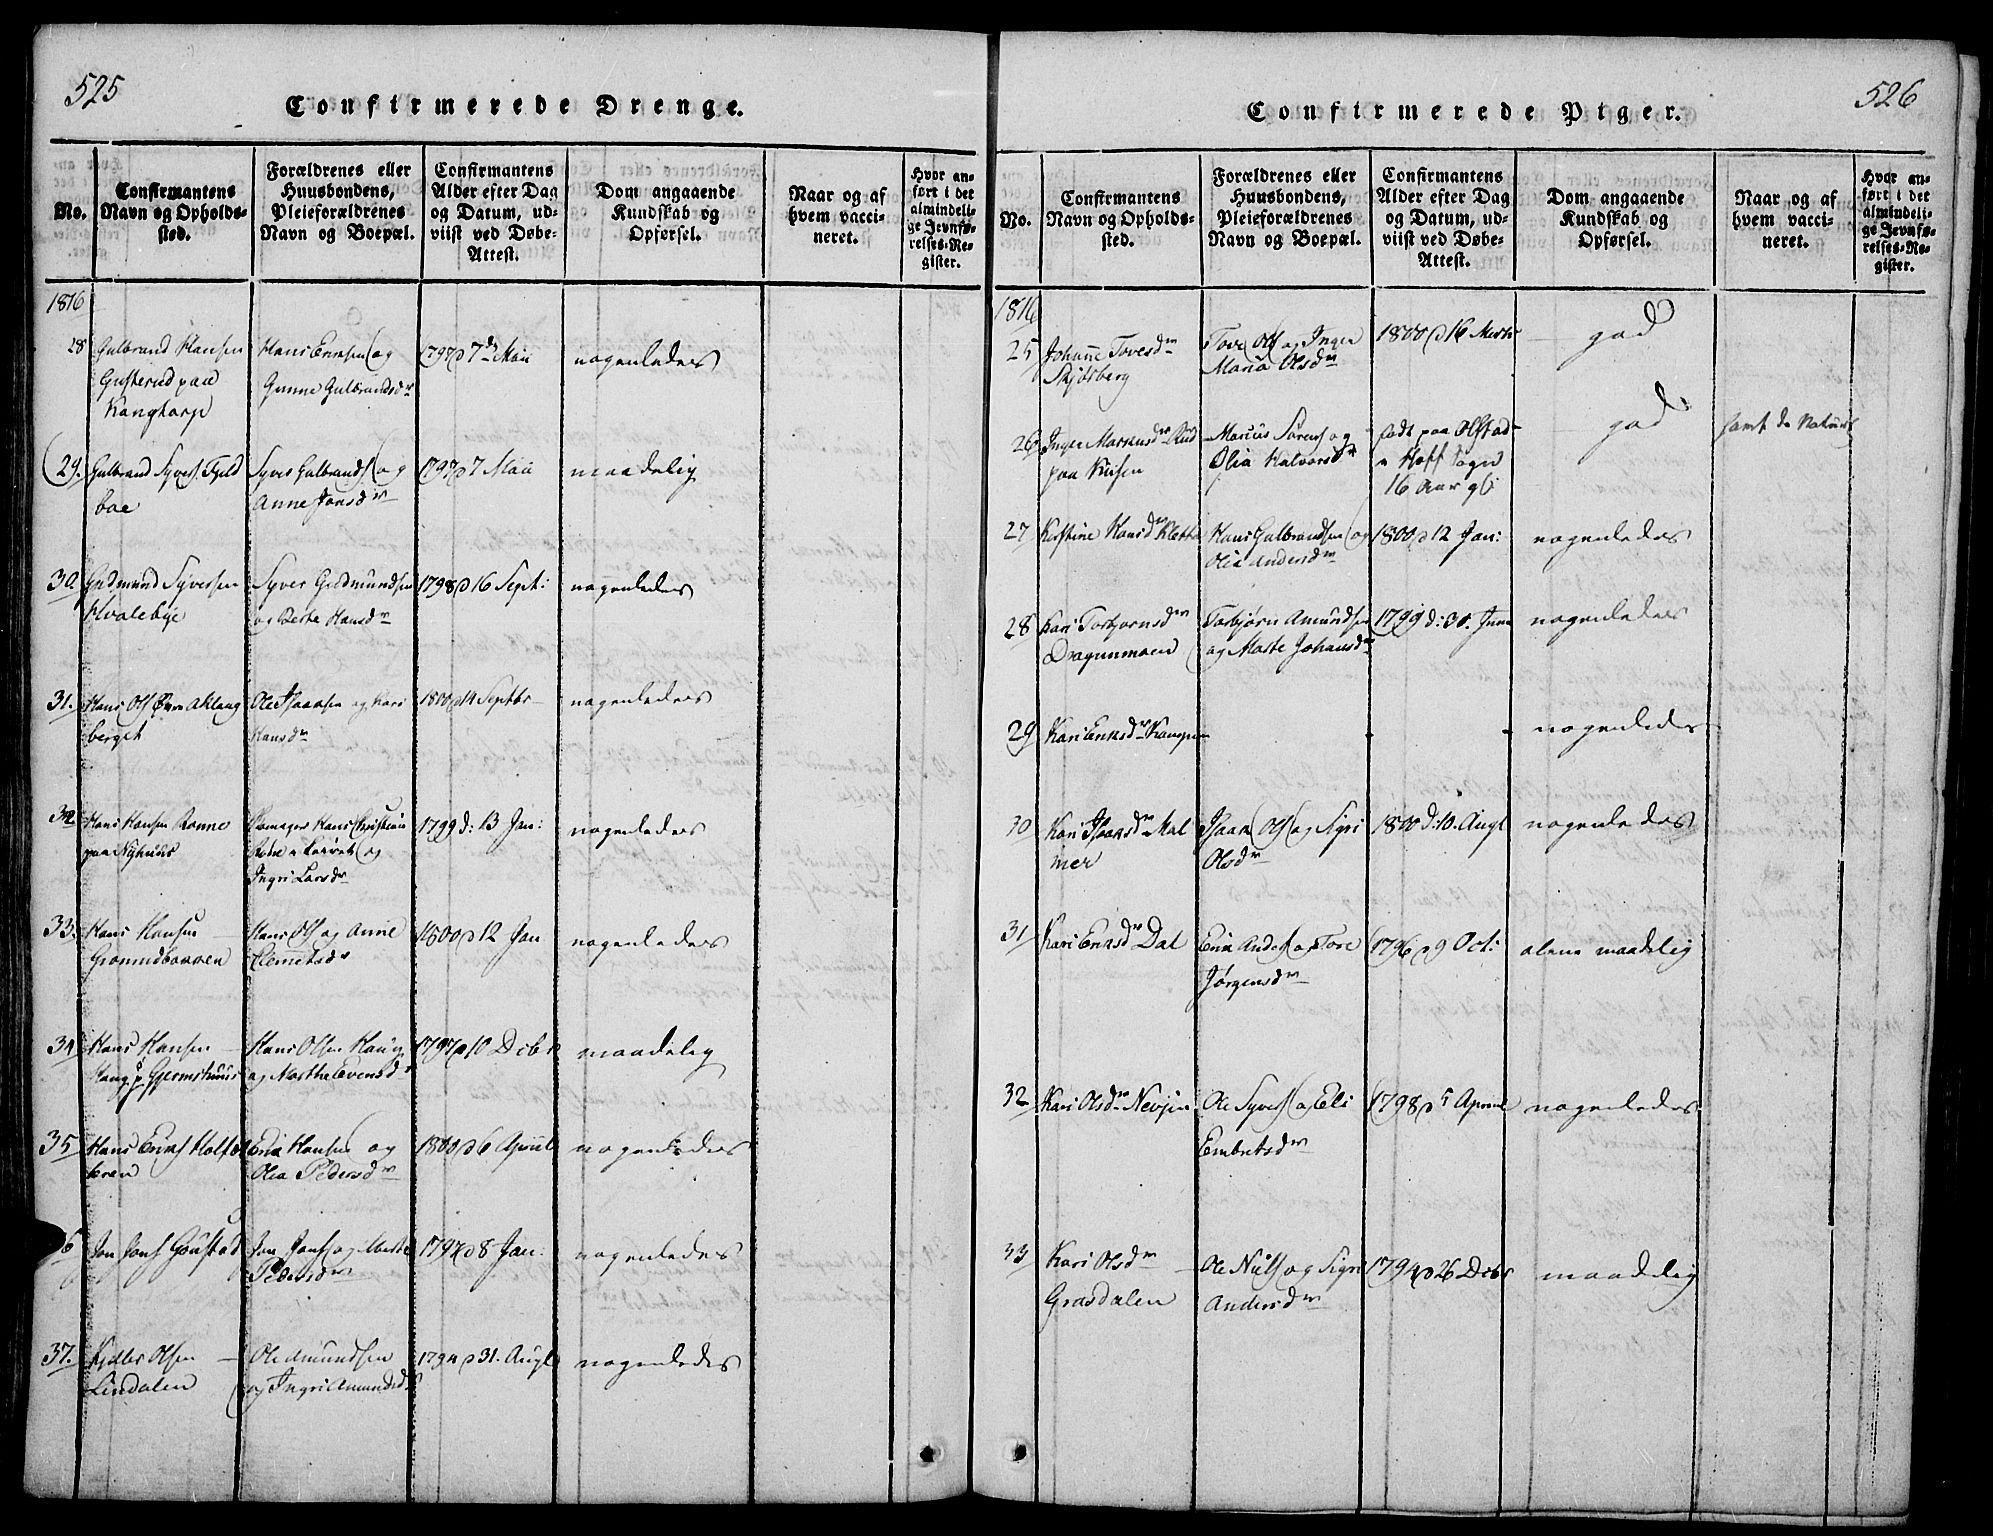 525
Confirmerede Drenge.
No.
Confirmantens
Navn og Opholds-
sted.
Forældrenes eller
Huusbondens,
Pleieforældrenes
Navn og Boepæl.
Confirmantens
Alder efter Dag
og Datum, ud-
viist ved Døbe-
Attest.
Dom angaaende
Kundskab og
Opførsel.
Naar og af
hvem vacci-
neret.
Hvor an-
ført i det
almindeli-
ge Jevnfø-
relses-Re-
gister.
1816
28
Gulbrand Hansen
Gusterud paa
Kangtorp
Hans Ericsen og
Gunne Gulbrandsdr
1797 d 7de Maii
nogenledes
29.
Gulbrand Syvers. Fjeld
boe
Syver Gulbrands. og
Anne Jonsdr
1797 d 7 Maii
maadelig
30.
Gudmund Syversen
Hvalebye
Syver Gudmundsen
og Berte Hansdr
1798 d 16 Sept:
nogenledes
31.
Hans Ols. Øvre Aklang
berget
Ole Isaaksen og Kari
Hansdr
1800 d 14 Septbr
nogenledes
32
Hans Hansen Rønne
paa Nyhuus
Hans Christian
og
Ingri Larsdr
1799 d: 13 Jan:
nogenledes
33.
Hans Hansen
Grønudbakken
Hans Ols. og Anne
Clemetsdr
1800 d 12 Jan
nogenledes
34
Hans Hansen
Haug p. Gjermshuus
Hans Olsen Haug
og Marthe Evensdr
1797 d 10 Dcbr
maadelig
35
Hans Erics. Holset
eren
Eric Hansen og
Olea Pedersdr
1800 d 6 April
nogenledes
6
Jon Jons. Goustad
Jon Jons. og Marte
Pedersdr
1797 d 8 Jan:
nogenledes
37.
Kjeller Olsen
Lindalen
Ole Amundsen
og Ingri Amundsd.
1794 d 31. Augl
nogenledes
526
Confirmerede Piger.
No.
Confirmantens
Navn og Opholds-
sted.
Forældrenes eller
Huusbondens,
Pleieforældrenes
Navn og Boepæl.
Confirmantens
Alder efter Dag
og Datum, ud-
viist ved Døbe-
Attest.
Dom angaaende
Kundskab og
Opførsel.
Naar og af
hvem vacci-
neret.
Hvor an-
ført i det
almindeli-
ge Jevnfø-
relses-Re-
gister.
1816
25
Johanne Tovesdr
Skjøsberg
Tove Ols. og Inger
Maria Olsdr
1800 d 16 Marts
god
26
Inger Marcusdr Rud
paa Kiisen
Marcus Sørens. og
Olia Halvorsdr
født paa Olstad
i Hoff Sogn
16 Aar gl:
god
havt de Naturl
27
Kirstine Hansdr Kletten
Hans Gulbrandsen og
Olia Andersdr
1800 d 12 Jan:
nogenledes
28
Kari Torbjørnsdr
Dragunmoen
Torbjørn Amundsen
og Marte Johansdr
1799 d: 30. Juni
nogenledes
29
Kari Ericsdr Kangen
nogenledes
30
Kari Isaaksdr Mal
mer
Isaak Ols. og Sigri
Olsdr
1800 d: 10. Augl
nogenledes
31
Kari Ericsdr Dal
Eric Anders. og Tore
Jørgensdr
1796 d 9 Oct:
alene maadelig
32
Kari Olsdr Nevjen
Ole Syvers. og Eli
Embretsdr
1798 d 5 Apriil
nogenledes
33
Kari Olsdr
Grasdalen
Ole Niels. og Sigri
Andersdr
1794 d 26 Dcbr
maadelig